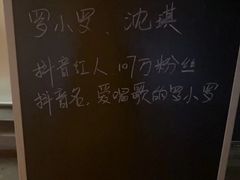 罗小罗、沈琪
抖音红人 107万粉丝
抖音名,爱唱歌的罗小罗